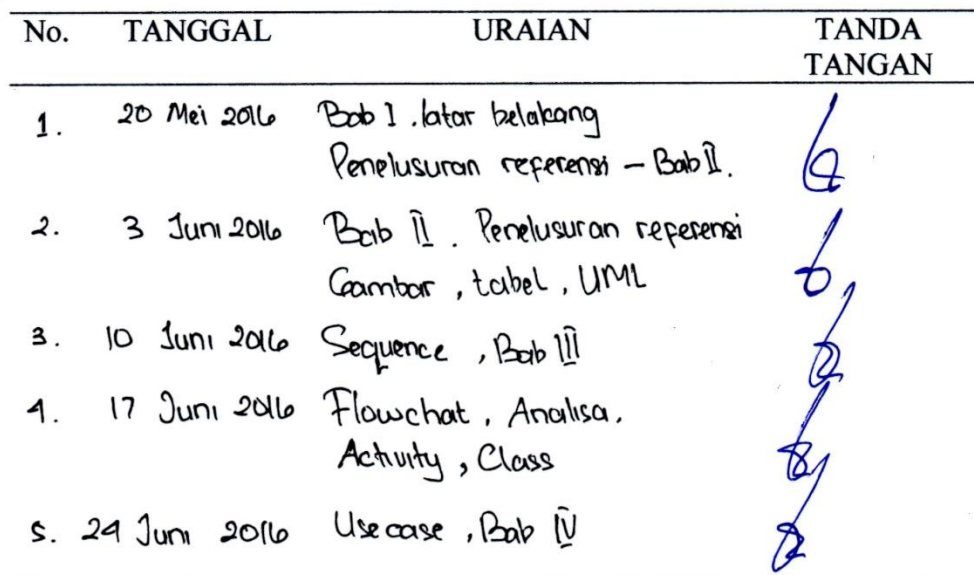 No. TANGGAL URAIAN TANDA
TANGAN
1. 20 Mei 2016 Bab I . latar belakang
Penelusuran referensi – Bab II.
2. 3 Juni 2016 Bab II . Penelusuran referensi
Gambar , tabel , UML
3. 10 Juni 2016 Sequence , Bab III
4. 17 Juni 2016 Flowchat , Analisa ,
Activity , Class
5. 24 Juni 2016 Use case , Bab IV